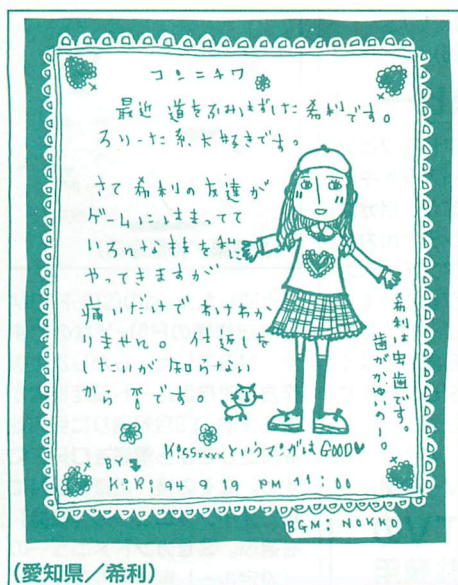 コンニチワ
最近 道をふみはずした希利です。
ろりーた系、大好きです。
さて希利の友達が
ゲームにはまってて
いろんな技を私に
やってきますが
痛いだけでわけわか
りません。仕返しを
したいが知らない
から否です。
希利は虫歯です。
歯がかゆいのー。
KissxxxxというマンガはGOOD♥
BY
KiRi 94 9 19 PM 11:00
BGM: NOKKO
(愛知県／希利)